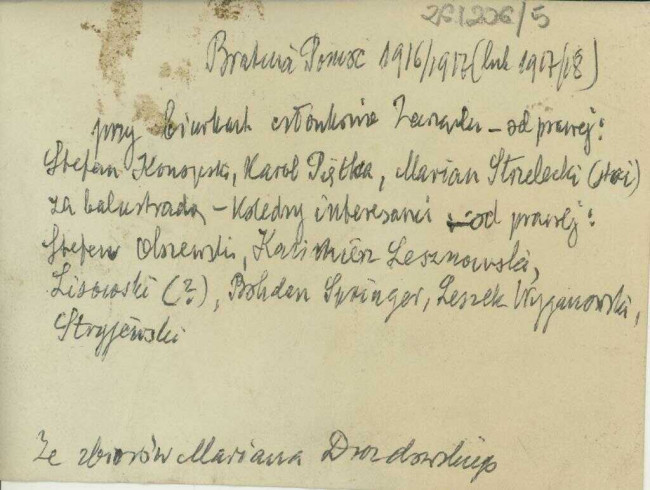 261206/5
Bratnia Pomoc 1916/1917 (lub 1917/18)
przy biurkach członkowie Zarządu – od prawej:
Stefan Konopski, Karol Piętka, Marian Strzelecki (stoi)
za balustradą – koledzy interesanci – od prawej:
Stefan Olszewski, Kazimierz Lesznowski,
Lisowski (?), Bohdan Springer, Leszek Wyganowski,
Stryjewski
Ze zbiorów Mariana Drozdowskiego